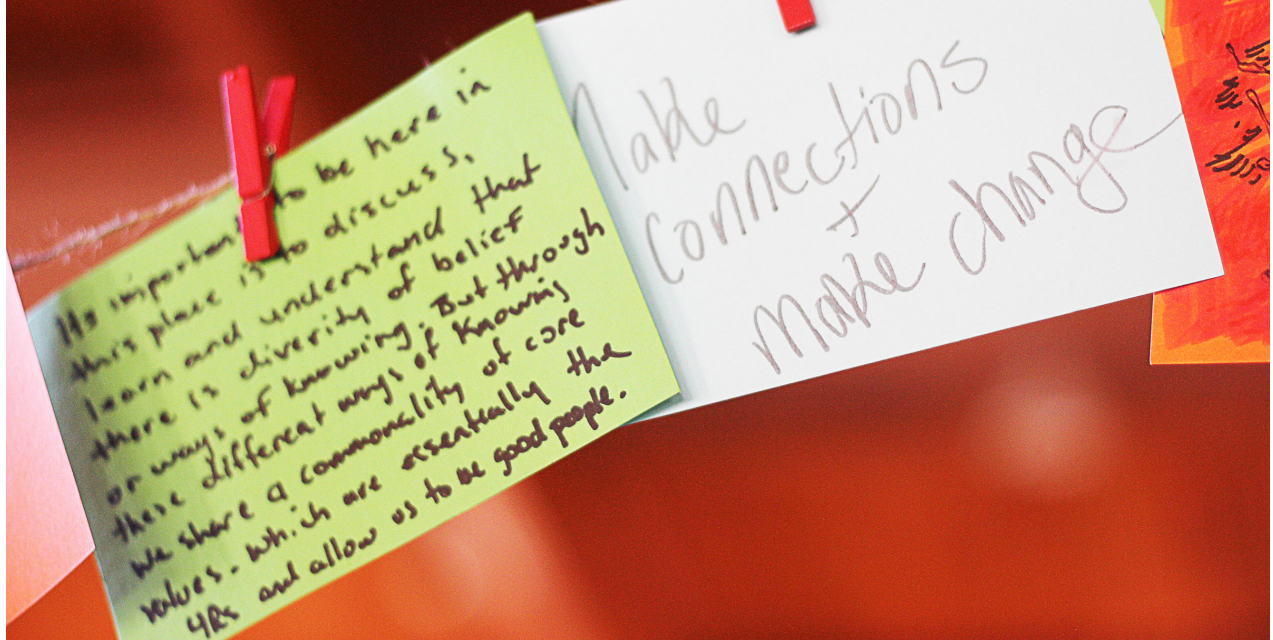 Its important to be here in
this place is to discuss,
learn and understand that
there is diverity of belief
or ways of knowing. But through
these different ways of knowing
we share a commonality of core
values. Which are essentially the
4Rs and allow us to be good people.
Make
connections
+
Make change